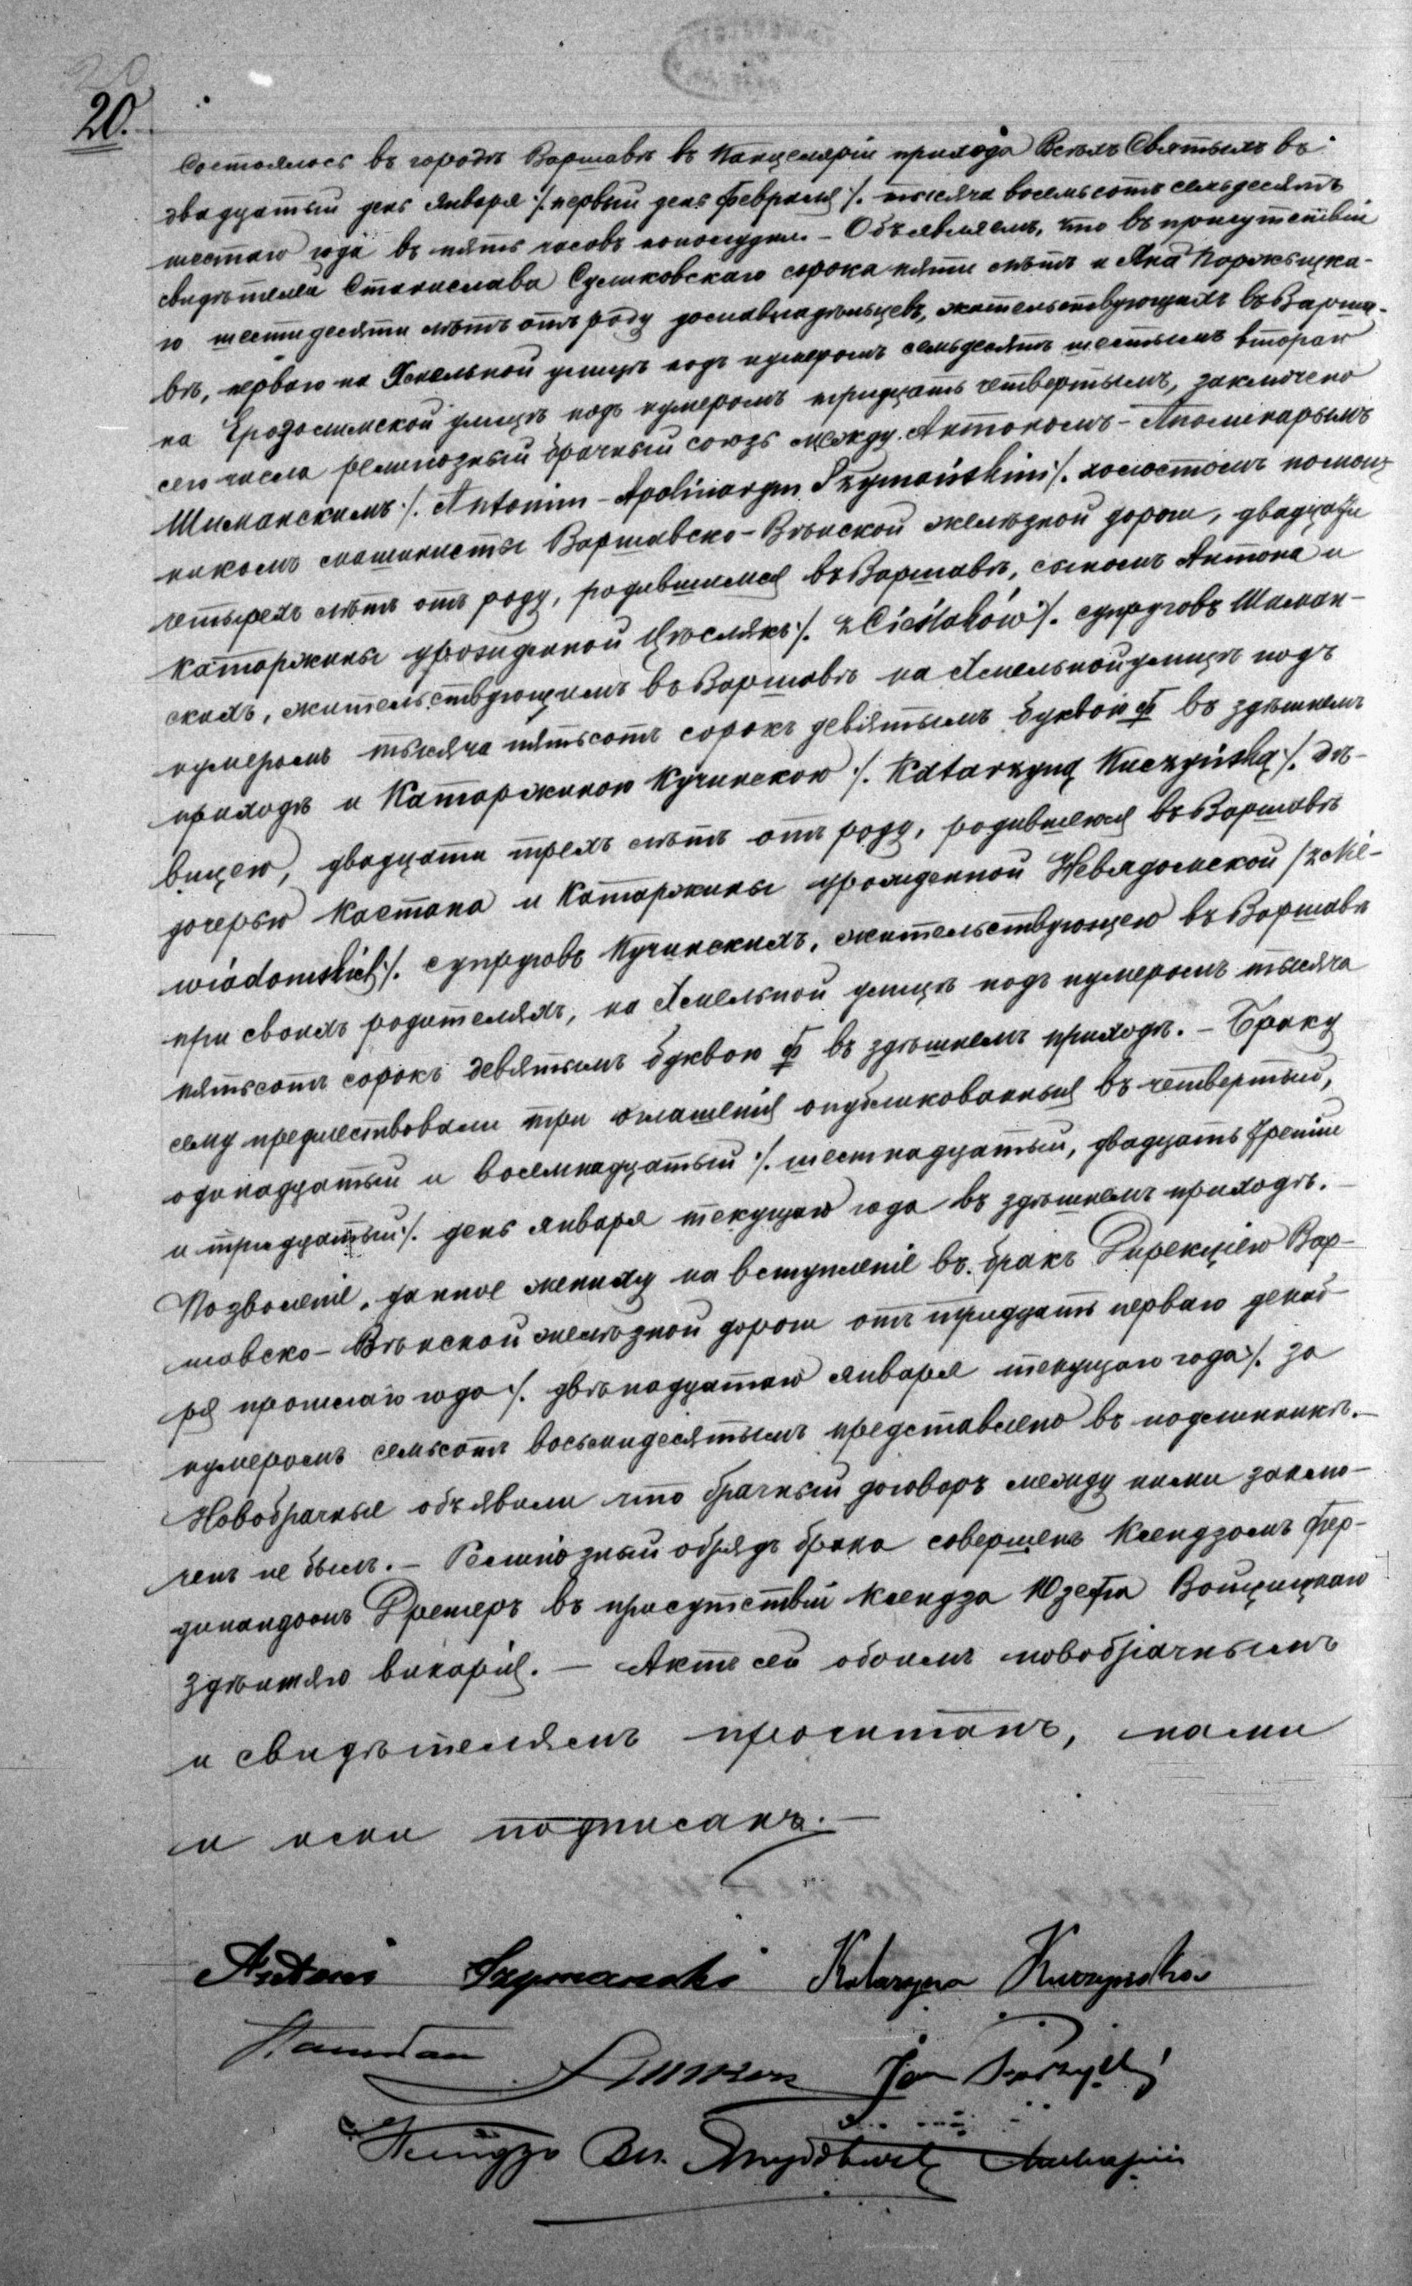 20.
Состоялось въ городѣ Варшавѣ въ Канцеляріи прихода Всѣхъ Святыхъ въ
двадцатый день Января /. первый день Февраля /. тысяча восемьсотъ семьдесятъ
шестаго года въ пять часовъ пополудни – Объявляемъ, что въ присутствіи
свидѣтелей Станислава сорока пяти лѣтъ и Яна
го шестидесяти лѣтъ отъ роду домавладѣльцевъ, жительствующихъ въ Варша-
вѣ, перваго на Хмельной улицѣ подъ нумеромъ семьдесятъ шестымъ втораго
на Ерозолимской улицѣ подъ нумеромъ тридцать четвертымъ, заключено
сего числа религіозный брачный союзъ между Антономъ-Аполинарымъ
Шиманскимъ /. Antonim-Apolinarym Szymańskim /. холостымъ помощ-
никомъ машинисты Варшавско-Вѣнской желѣзной дороги, двадцати
четырехъ лѣтъ отъ роду, родившимся въ Варшавѣ, сыномъ Антона и
Катаржины урожденной Цѣслякъ /. z Cieślaków /. супруговъ Шиман-
скихъ, жительствующимъ въ Варшавѣ на Хмельной улицѣ подъ
нумеромъ тысяча пятьсотъ сорокъ девятымъ буквою Ф въ здѣшнемъ
приходѣ и Катаржиною Кучинскою /. Katarzyną Kuczyńską /. дѣ-
вицею, двадцати трехъ лѣтъ отъ роду, родившеюся въ Варшавѣ
дочерью Каетана и Катаржины урожденной Невядомской /. z Nie-
wiadomskich /. супруговъ Кучинскихъ, жительствующею въ Варшавѣ
при своихъ родителяхъ, на Хмельной улицѣ подъ нумеромъ тысяча
пятьсотъ сорокъ девятымъ буквою Ф въ здѣшнемъ приходѣ. – Браку
сему предшествовали три оглашенія опубликованныя въ четвертый,
одинадцатый и восемнадцатый /. шестнадцатый, двадцать третій
и тридцатый /. день Января текущаго года въ здѣшнемъ приходѣ. –
Позволеніе, данное жениху на вступленіе въ бракъ Дирекціею Вар-
шавско-Вѣнской желѣзной дороги отъ тридцать перваго декаб-
ря прошлаго года /. двѣнадцатаго января текущаго года /. за
нумеромъ семьсотъ восьмидесятымъ представлено въ подлинникѣ. –
Новобрачные объявили что брачный договоръ между ними заклю-
ченъ не былъ. – Религіозный обрядъ брака совершенъ Ксендзомъ Фер-
динандомъ Дрегеръ въ присутствіи Ксендза Юзефа Войцицкаго
здѣшняго викарія. – Актъ сей обоимъ новобрачнымъ
и свидѣтелямъ прочитанъ, нами
и ими подписанъ. –
Antoni Szymanski Katarzyna Kuczynska
Stanisław
Jan
Ксендзъ